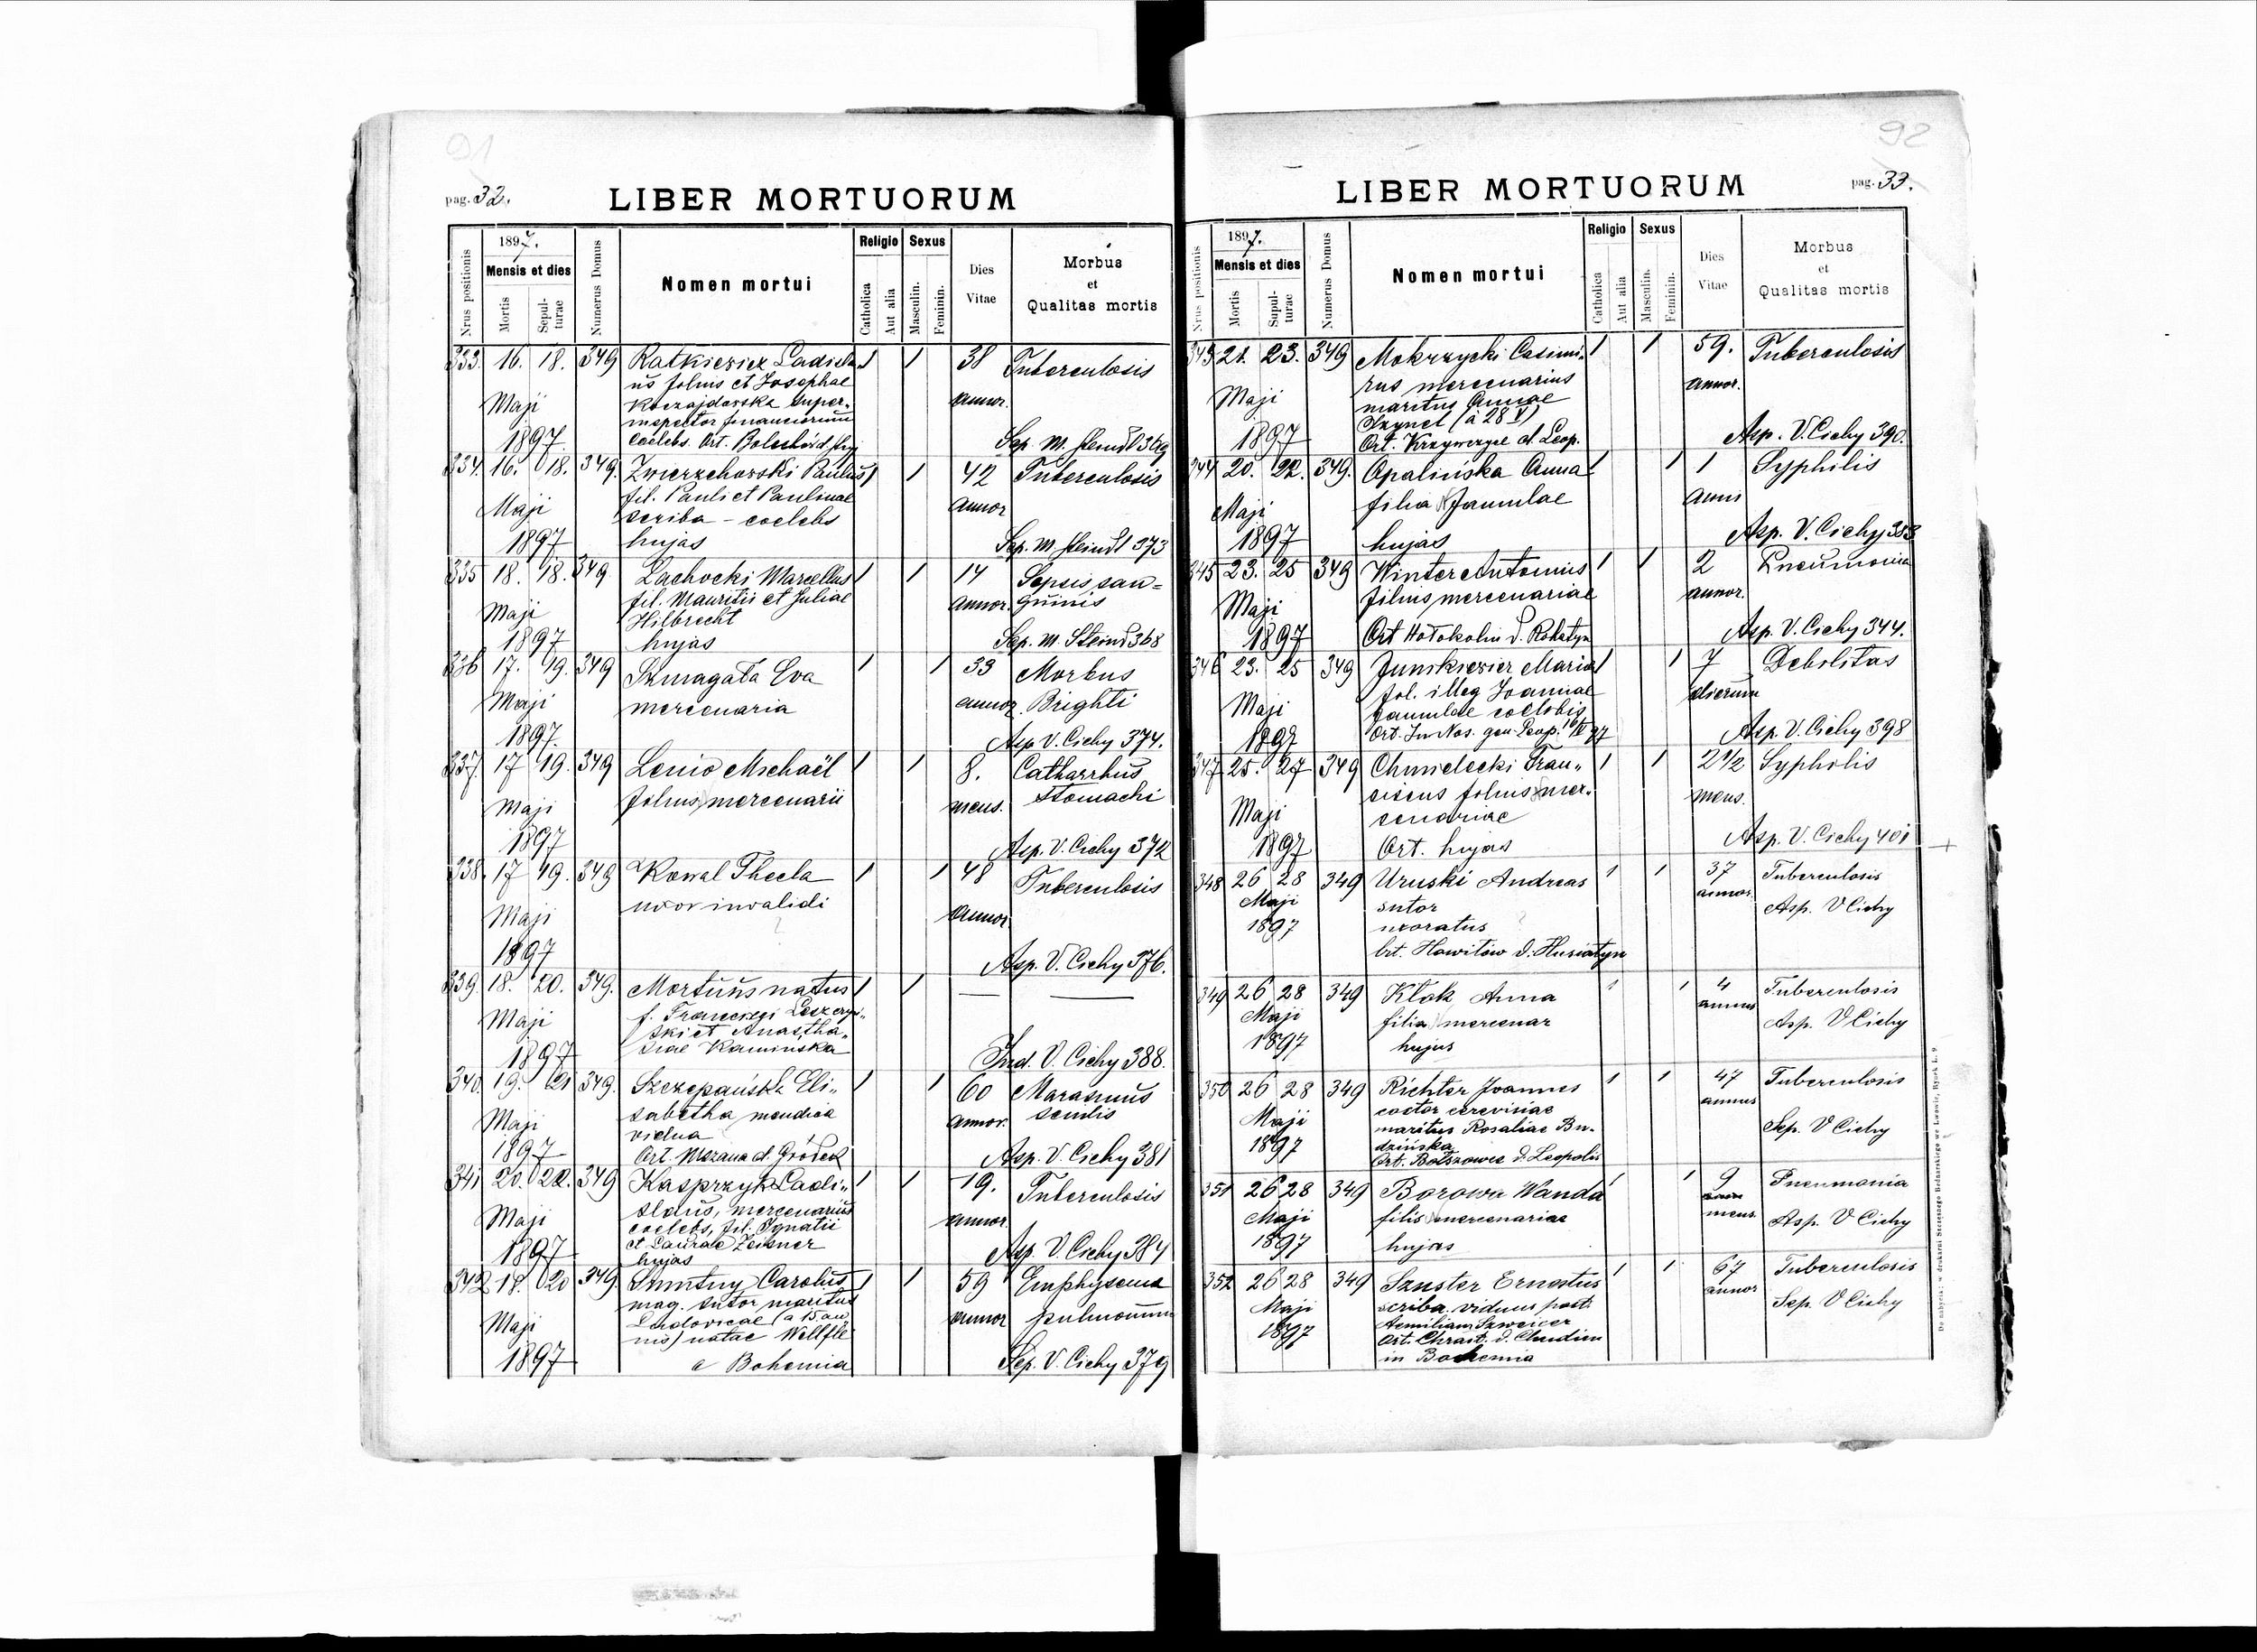 91
pag. 32.
LIBER MORTUORUM
Nrus positionis
1897.
Mensis et dies
Mortis
Sepul-
turae
Numerus Domus
Nomen mortui
Religio
Catholica
Aut alia
Sexus
Masculin.
Feminin.
Dies
Vitae
Morbus
et
Qualitas mortis
333. 16. 18. 349 Ratkiewicz Ladisla- 1 1 38 Tuberculosis
us filius et Josephae
Maji annor.
inspector financiorum
1897 coelebs. Ort. Sep. M. Steindl 369
334. 16. 18. 349. Zwierzchowski Paulus 1 1 42 Tuberculosis
fil. Pauli et Paulinae
Maji scriba - coelebs annor
1897 hujas Sep. M. Steindl 373
335 18. 18. 349 Lachocki Marcellus 1 1 14 Sepsis san=
fil. Mauritii et Juliae annor. guinis
Maji Hilbrecht
1897 hujas Sep. M. Steind 368
336 17. 19. 349 Szmagała Eva 1 1 33 Morbus
Maji mercenaria annor. Brighti
1897. Asp V. Cichy 374.
337. 17 19. 349 Lenio Michaël 1 1 8. Catharrhus
Maji filius mercenarii mens. stomachi
1897 Asp. V. Cichy 372
338. 17 19. 349 Kowal Thecla 1 1 48 Tuberculosis
Maji uxor invalidi annor.
1897 Asp. V. Cichy 376.
339. 18. 20. 349. Mortuus natus 1 1 — —
f. Francisci Leszczyń-
Maji ski et Anastha-
1897 siae Kamińska Ind. V. Cichy 388.
340. 19. 21 349. Szczepańska Eli- 1 1 60 Marasmus
sabetha mendica annor. senilis
Maji vidua
1897 Ort. Mszana d. Gródek Asp. V. Cichy 381
341 20. 22. 349 Kasprzyk Ladi- 1 1 19. Tuberculosis
slaus, mercenarius
Maji coelebs, fil. Ignatii annor.
et Laurae Zeisner
1897 hujas Asp. V. Cichy 384
342 18. 20 349 Smutny Carolus 1 1 59 Emphysema
mag. sutor maritus
Maji Ludovicae (a 15 an- annor pulmonum
nis) natae Wellfle
1897 a Bohemia Sep. V. Cichy 379
92
LIBER MORTUORUM
pag. 33.
Nrus positionis
1897.
Mensis et dies
Mortis
Sepul-
turae
Numerus Domus
Nomen mortui
Religio
Catholica
Aut alia
Sexus
Masculin.
Feminin.
Dies
Vitae
Morbus
et
Qualitas mortis
343 21. 23. 349 Mokrzycki Casimi- 1 1 59. Tuberculosis
rus mercenarius annor.
Maji maritus Annae
(à 28 V)
1897 Ort. d Leop. Asp. V. Cichy 390.
344 20. 22. 349. Opalińska Anna 1 1 1 Syphilis
Maji filia famulae anni
1897 hujas Asp. V. Cichy 383
345 23. 25 349 Winter Antonius 1 1 2 Pneumonia
Maji filius mercenariae annor.
1897 Ort Hołokolin d. Rohatyn Asp. V. Cichy 344.
346 23. 25 349 Maria 1 1 7 Debilitas
fil. illeg Joannae dierum
Maji famulae coelebis
1897 Ort. In Nos. gen. Leop. Asp. V. Cichy 398
347 25. 27 349 Chmielecki Fran- 1 1 2 1/2 Syphilis
ciscus filius mer- mens.
Maji cenariae
1897 Ort. hujas Asp. V. Cichy 401
348 26 28 349 Uruski Andreas 1 1 37 Tuberculosis
Maji sutor annor. Asp. V Cichy
1897 uxoratus
Ort. Howiłów d. Husiatyn
349 26 28 349 Kłak Anna 1 1 4 Tuberculosis
Maji filia mercenar annus Asp. V Cichy
1897 hujus
350 26 28 349 Richter Joannes 1 1 47 Tuberculosis
coctor cerevisiae annus
Maji maritus Rosaliae Bu-
1897 dzińska Sep. V Cichy
Ort. Bołszowce d. Leopolis
351 26 28 349 Borowa Wanda 1 1 9 Pneumonia
Maji filia mercenariae mens. Asp. V Cichy
1897 hujas
352 26 28 349 Szuster Ernestus 1 1 67 Tuberculosis
Maji scriba viduus post. annor Sep. V Cichy
1897 Aemiliam Szweicer
Ort. Chrast. d. Chudim
in Bohemia
Do nabycia w drukarni Szczęsnego Bednarskiego we Lwowie, Rynek L. 9.